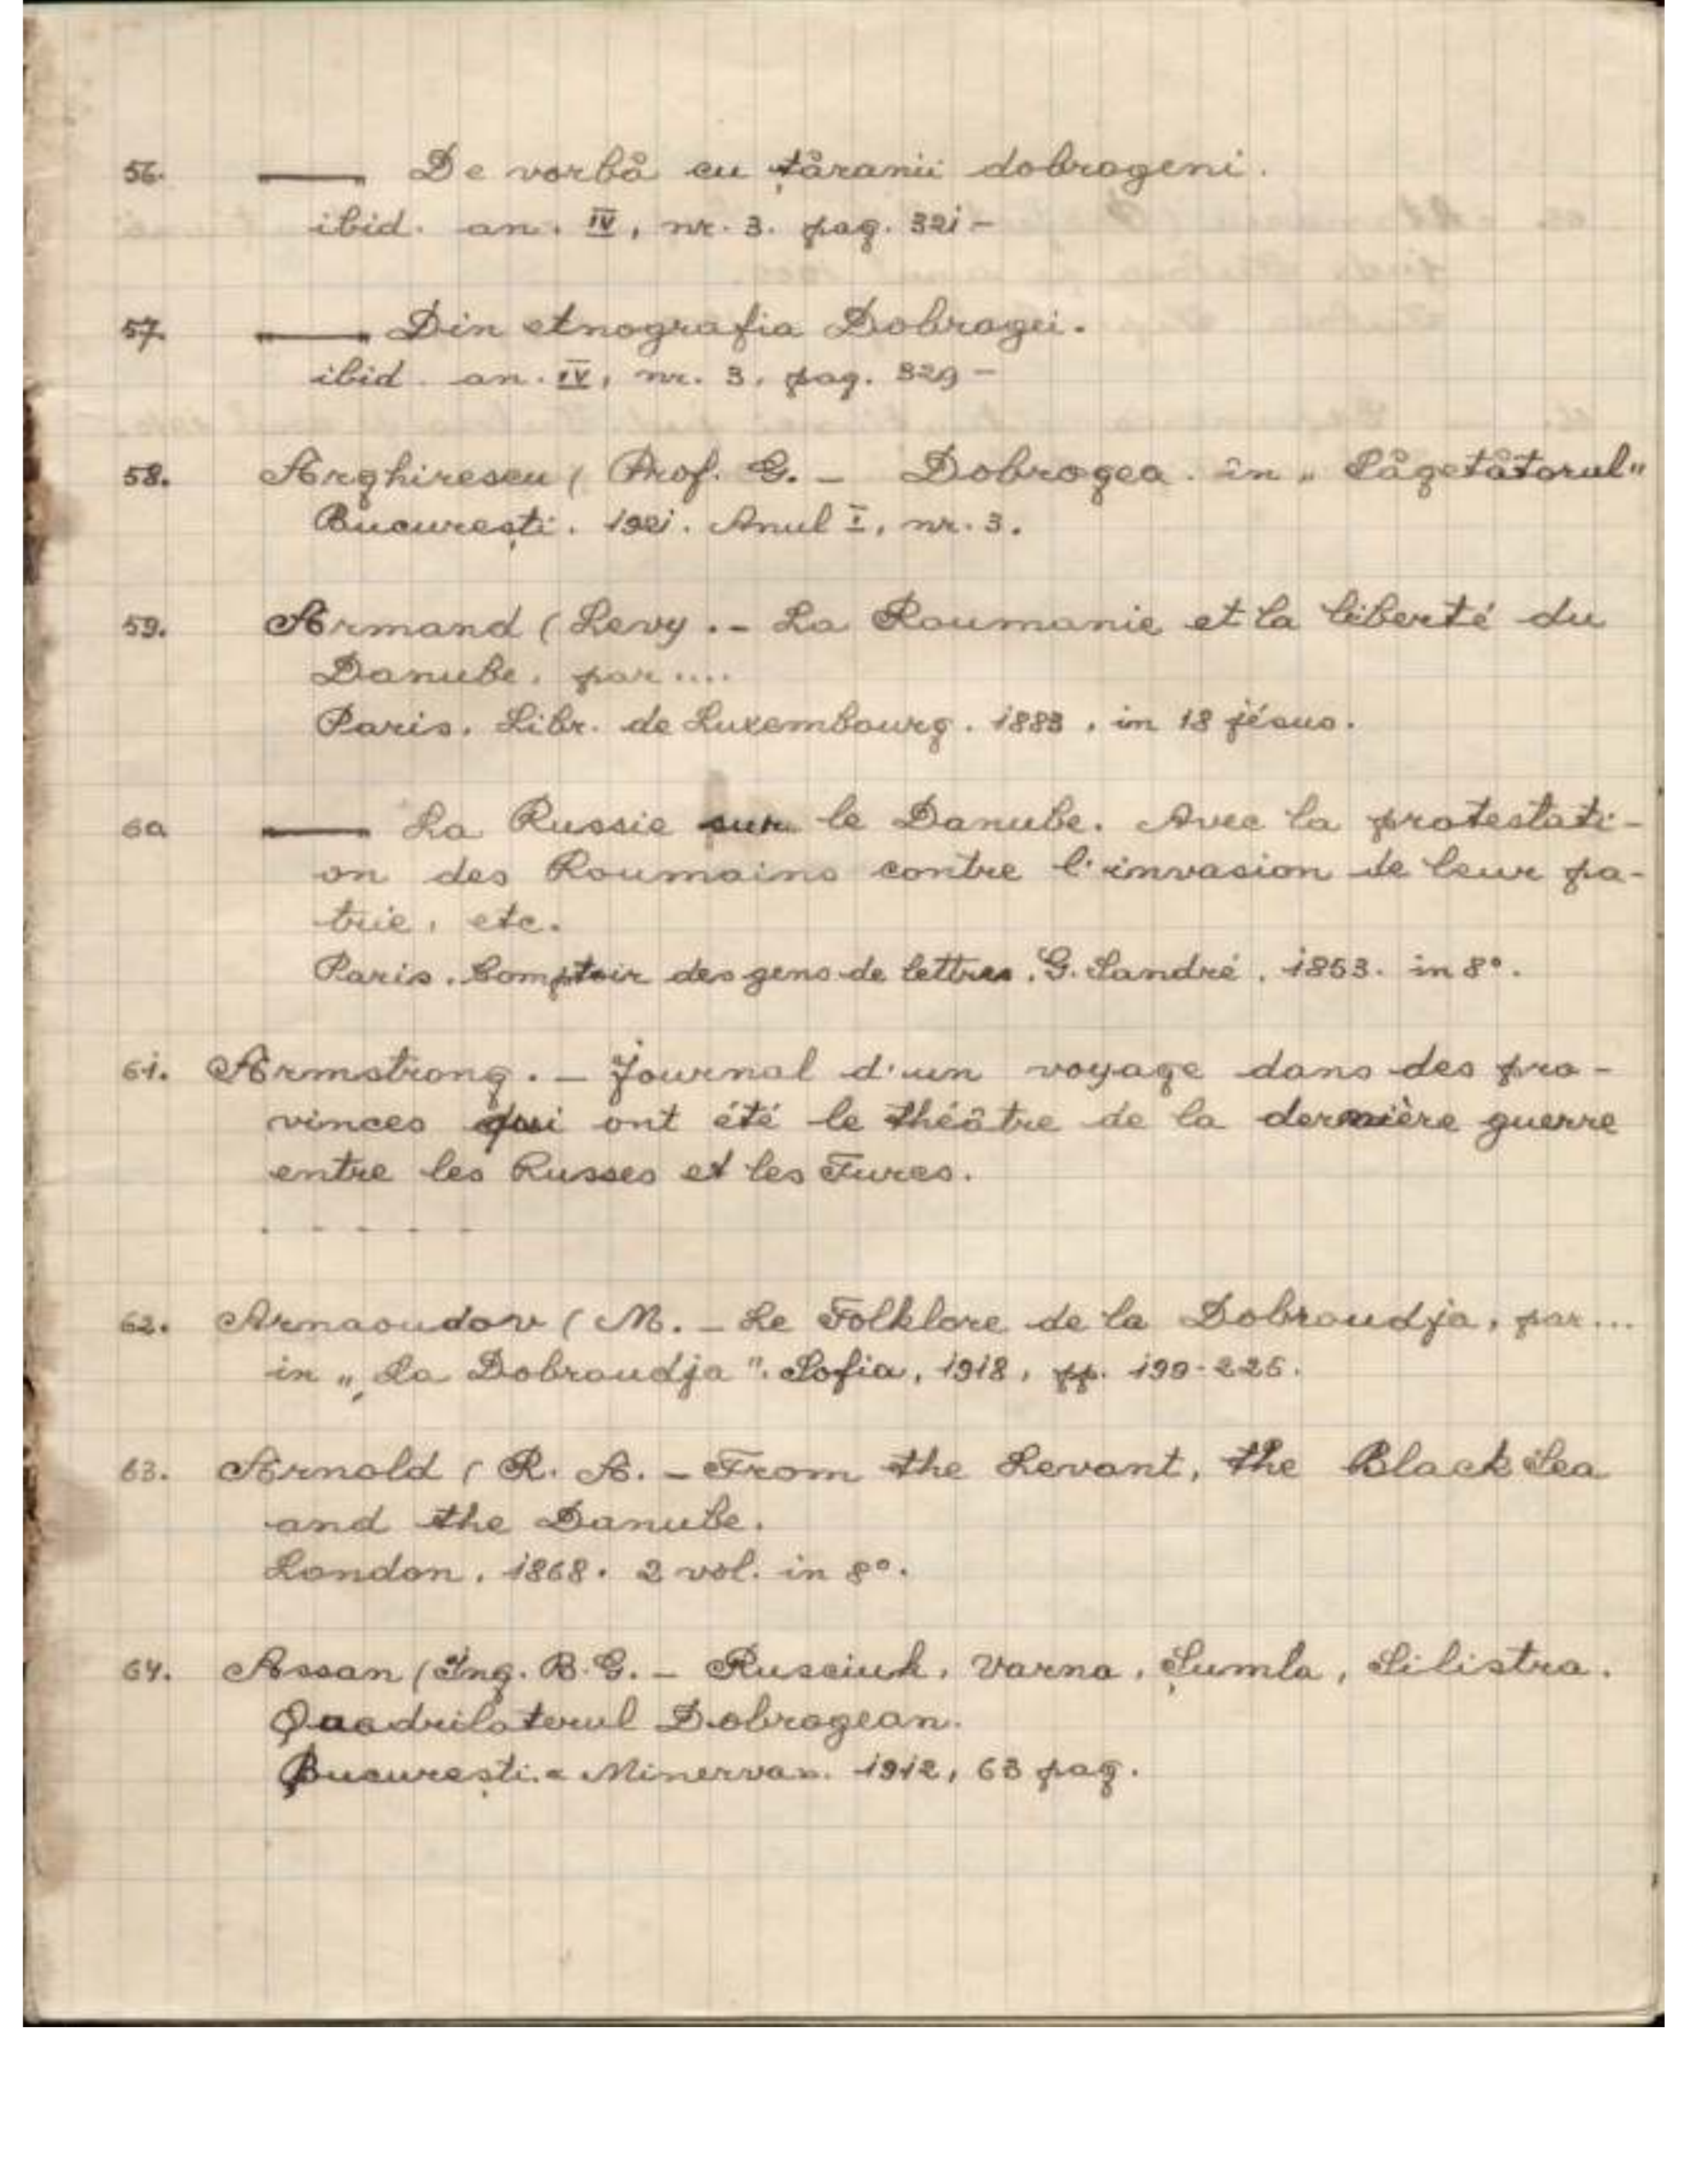 56. —— De vorbă cu țăranii dobrogeni.
ibid. an. IV, nr. 3. pag. 321 -
57. —— Din etnografia Dobrogei.
ibid. an. IV, nr. 3, pag. 329 -
58. Arghirescu ( Prof. G. - Dobrogea. în „ Săgetătorul"
București. 1921. Anul I, nr. 3.
59. Armand ( Levy. - La Roumanie et la liberté du
Danube, par....
Paris. Libr. de Luxembourg. 1883, in 18 jésus.
60 —— La Russie sur le Danube. Avec la protestati-
on des Roumains contre l'invasion de leur pa-
trie, etc.
Paris. Comptoir des gens de lettres. G. Sandré, 1853. in 8°.
61. Armstrong. - Journal d'un voyage dans des pro-
vinces qui ont été le théâtre de la dernière guerre
entre les Russes et les Turcs.
- - - - -
62. Arnaoudov ( M. - Le Folklore de la Dobroudja, par...
in „ La Dobroudja ". Sofia, 1918, pp. 199-226.
63. Arnold ( R. A. - From the Levant, the Black Sea
and the Danube.
London, 1868. 2 vol. in 8°.
64. Assan ( Ing. B. G. - Rusciuk, Varna, Șumla, Silistra.
Quadrilaterul Dobrogean.
București. « Minerva». 1912, 63 pag.